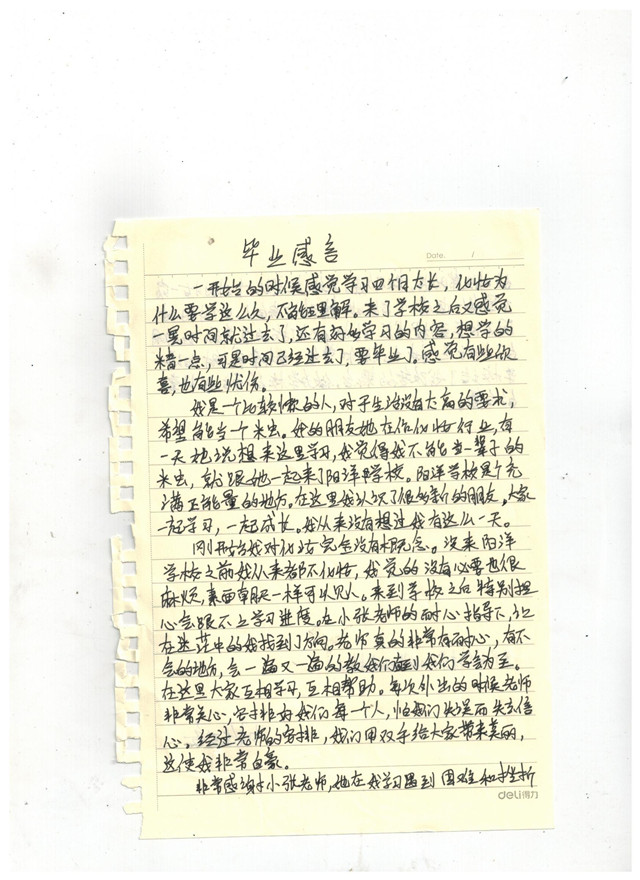 毕业感言
Date. /
一开始的时候感觉学习四个月太长，化妆为
什么要学这么久，不能理解。来了学校之后又感觉
一晃时间就过去了，还有好多学习的内容，想学的
精一点，可是时间已经过去了，要毕业了。感觉有些欣
喜，也有些忧伤。
我是一个比较懒的人，对于生活没有太高的要求，
希望能当个米虫。我的朋友她在做化妆行业，有
一天她说想来这里学习，我觉得我不能当一辈子的
米虫，就跟她一起来了阳洋学校。阳洋学校是个充
满正能量的地方。在这里我认识了很多新的朋友。大家
一起学习，一起成长。我从来没有想过我有这么一天。
刚开始我对化妆完全没有概念。没来阳洋
学校之前我从来都不化妆，我觉的没有必要也很
麻烦，素面朝天一样可以见人。来到学校之后特别担
心会跟不上学习进度。在小张老师的耐心指导下，让
在迷茫中的我找到了方向。老师真的非常有耐心，有不
会的地方，会一遍又一遍的教我们直到我们学会为至。
在这里大家互相学习，互相帮助。每次外出的时候老师
非常关心，安排好我们每一个人，怕我们失误而失去信
心，经过老师的安排，我们用双手给大家带来美丽，
这使我非常自豪。
非常感谢小张老师，她在我学习遇到困难和挫折
deli得力